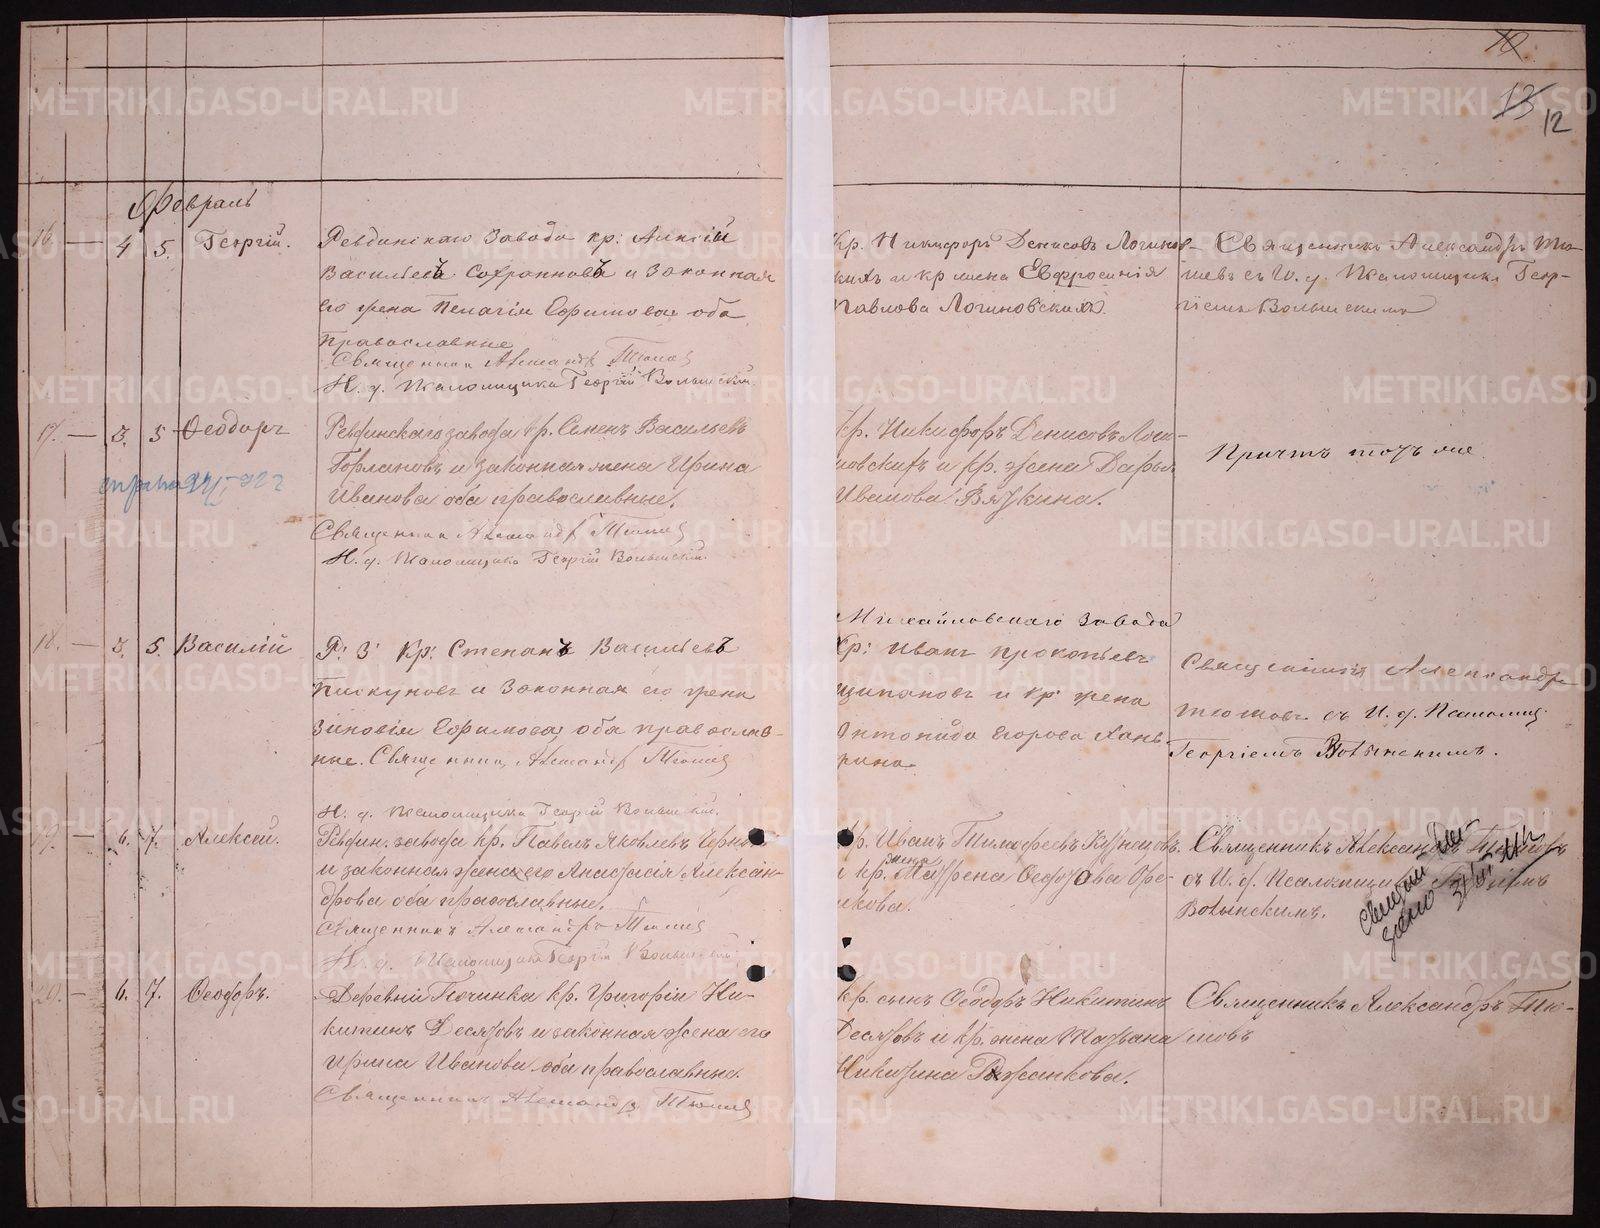 10
13
12
Февраль
16. — 4 5. Георгій.
Ревдинскаго завода кр: Алексій
Васильевъ Сохранновъ и законная
его жена Пелагія Ефимова оба
православные
Священникъ Александръ Тюшевъ
И. д. Псаломщика Георгій Волынскій.
Кр. Никифоръ Денисовъ Логинов-
скихъ и кр жена Евфросинія
Павлова Логиновскихъ.
Священникъ Александръ Тю-
шевъ съ И. д. Псаломщика Геор-
гіемъ Волынскимъ
17. — 3. 5 Ѳеодоръ
Ревдинскаго завода кр. Семенъ Васильевъ
Горлановъ и законная жена Ирина
Иванова оба православные.
Священникъ Александръ Тюшевъ
И. д. Псаломщика Георгій Волынскій.
Кр. Никифоръ Денисовъ Логи-
новскихъ и кр. жена Дарья
Иванова Вяткина.
Причтъ тотъ же.
18. — 3. 5. Василій
Р: З: Кр: Степанъ Васильевъ
Пискуновъ и законная его жена
Зиновія Ефимова оба православ-
ные. Священникъ Александръ Тюшевъ
И. д. Псаломщика Георгій Волынскій.
Михайловскаго завода
Кр: Иванъ Прокопьевъ
Щипановъ и кр: жена
Антонида Егорова
Священникъ Александръ
Тюшевъ съ И. д. Псаломщ.
Георгіемъ Волынскимъ.
19. — 6. 7. Алексей.
Ревдин. завода кр. Павелъ Яковлевъ
и законная жена его Анастасія Алексан-
дрова оба православные.
Священникъ Александръ Тюшевъ
И. д. Псаломщика Георгій Волынскій
кр. Иванъ Тимофеевъ Кузнецовъ
и кр. жена Матрена Ѳедотова
Священникъ Александръ Тюшевъ
съ И. д. Псаломщика Георгіемъ
Волынскимъ.
20. — 6. 7. Ѳеодоръ.
Деревни Починка кр. Григорій Ни-
китинъ Десятовъ и законная жена его
Ирина Иванова оба православные.
Священникъ Александръ Тюшевъ
кр. сынъ Ѳеодоръ Никитинъ
Десятовъ и кр. жена Татьяна
Никитина
Священникъ Александръ Тю-
шевъ
METRIKI.GASO-URAL.RU